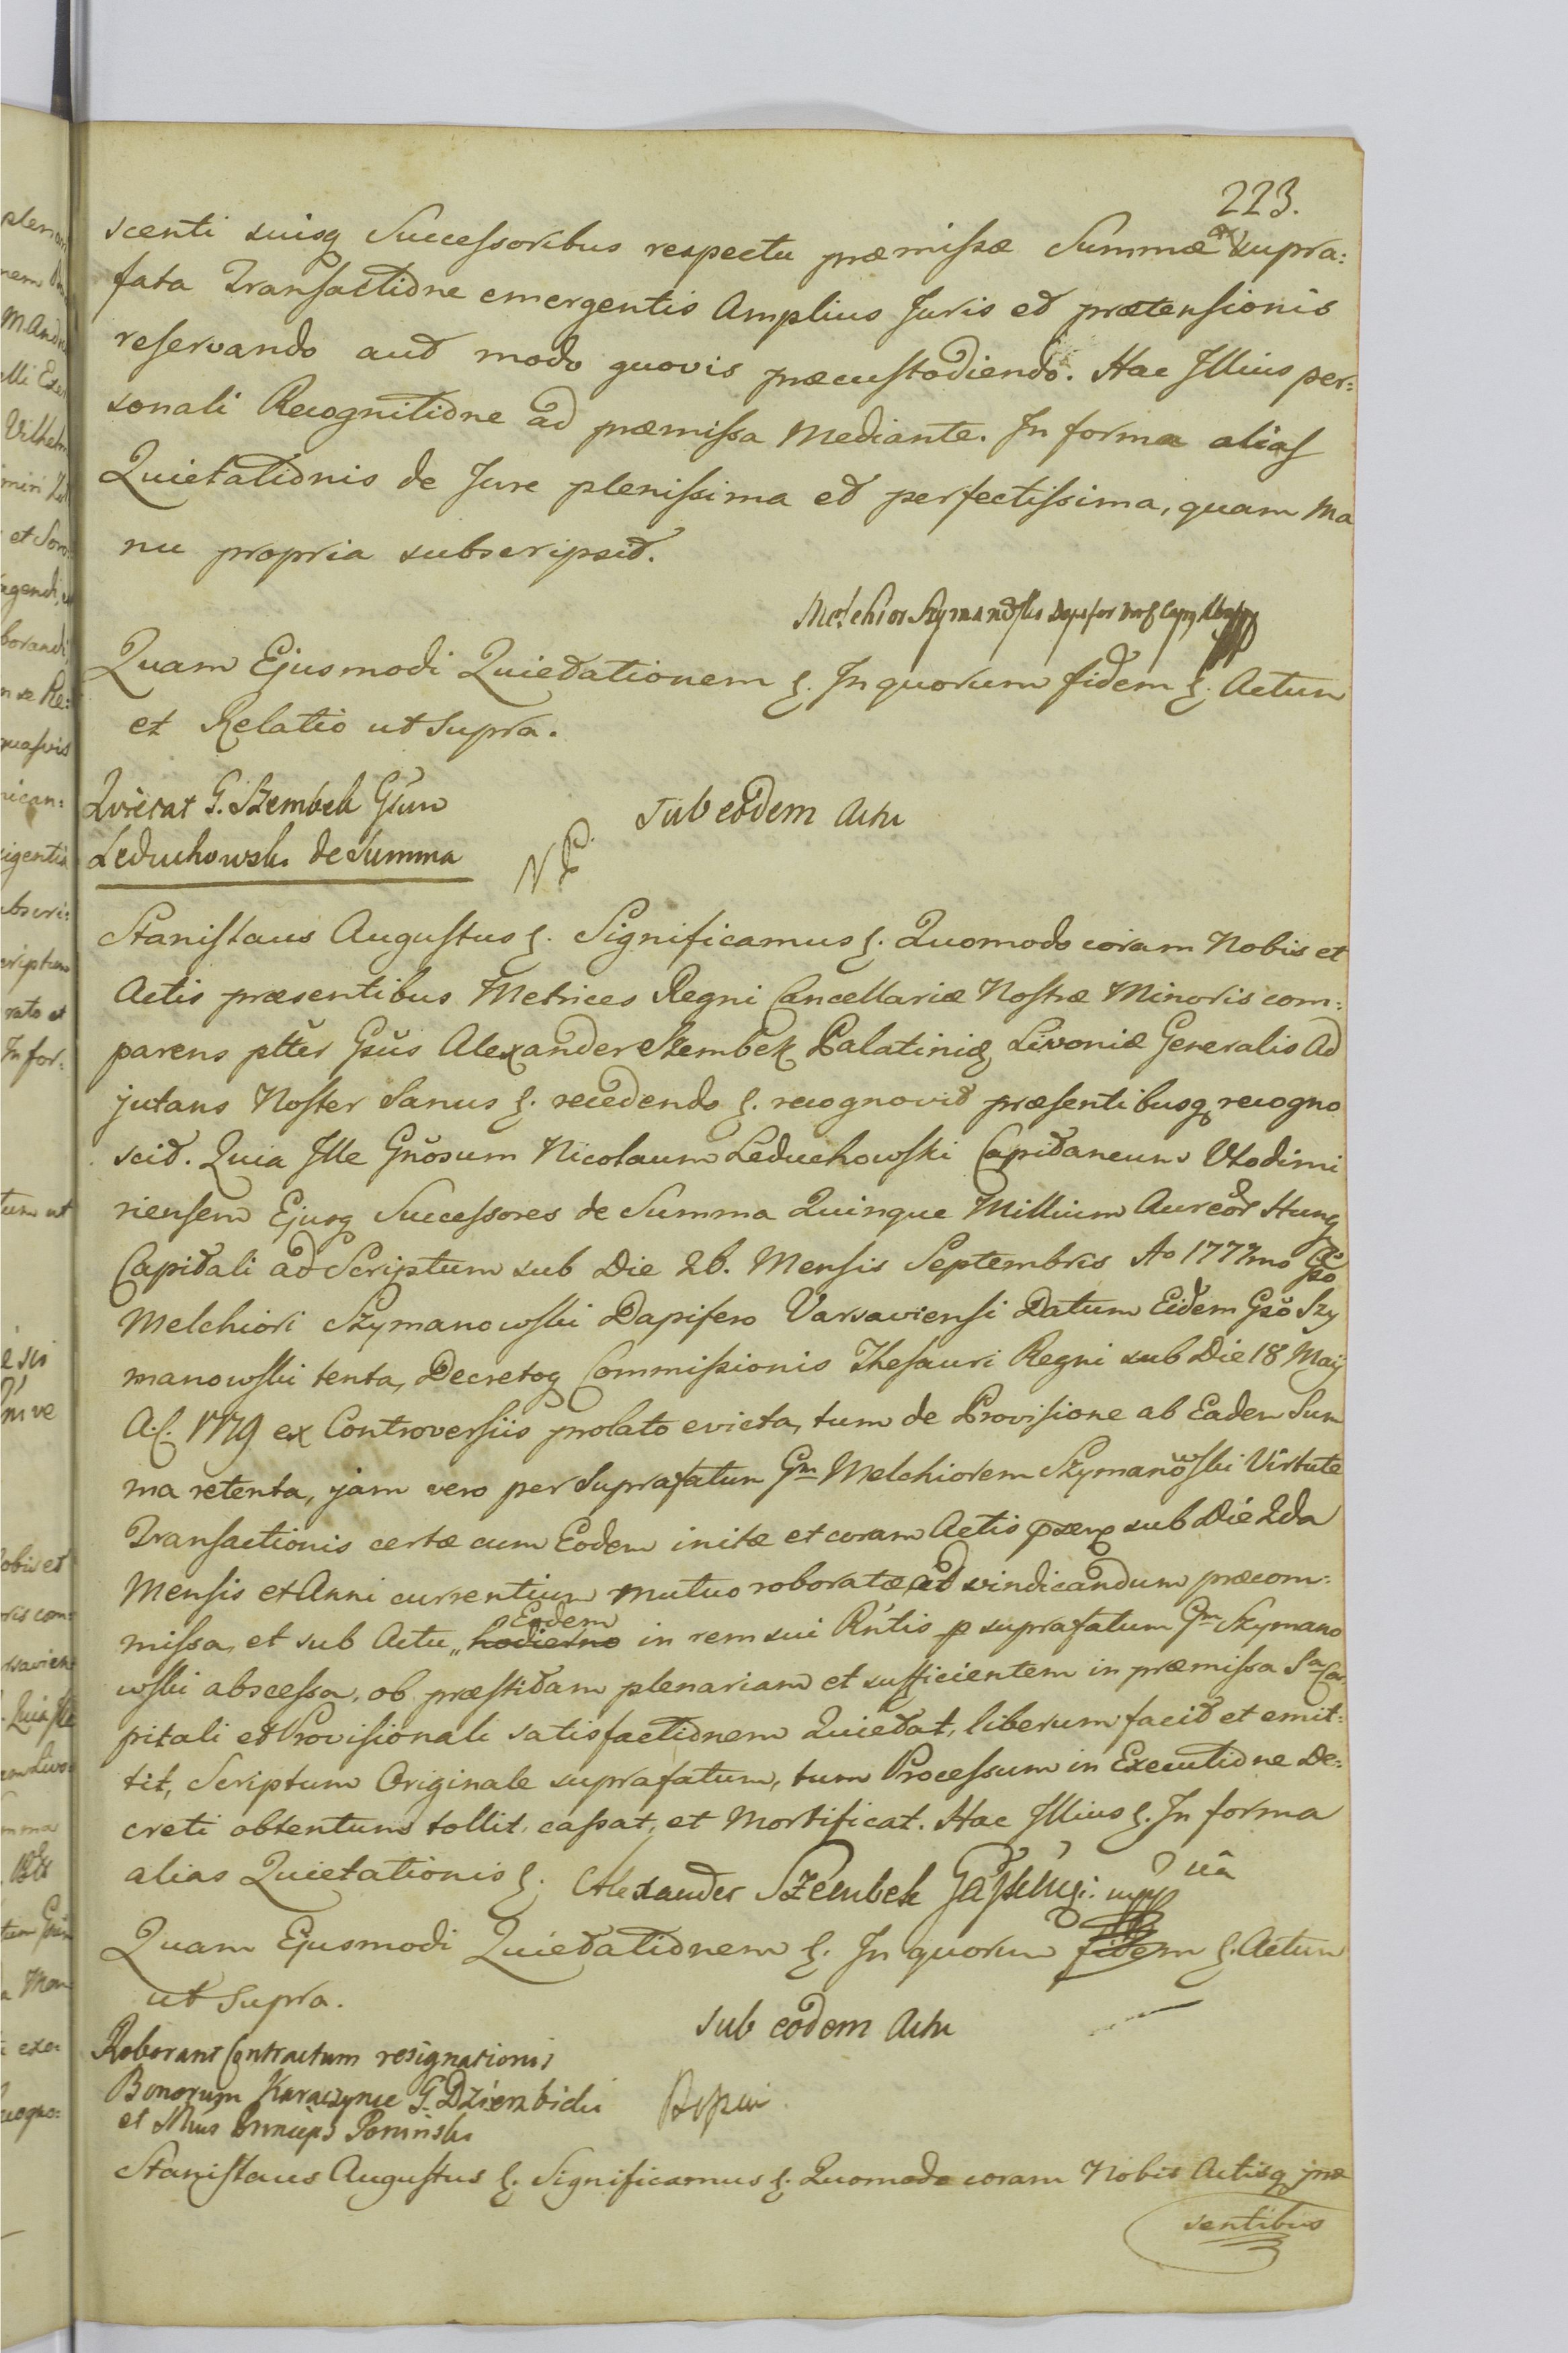 223.
scenti suisq Successoribus respectu præmissæ Summæ ex supra:
fata Transactione emergentis Amplius Juris et prætensionis
reservando aut modo quovis præcustodiendo. Hac Illius per:
sonali Recognitione ad præmissa Mediante. In forma alias
Quietationis de Jure plenissima et perfectissima, quam Ma
nu propria subscripsit.
Melchior Szymanowski
Quam Ejusmodi Quietationem &. In quorum fidem &. Actum
et Relatio ut supra.
Quietat G. Szembek Gsum
Leduchowski de Summa
Sub eodem Actu
Stanislaus Augustus &. Significamus &. Quomodo coram Nobis et
Actis præsentibus Metrices Regni Cancellariæ Nostræ Minoris com:
parens plter Gsus Alexander Szembek Palatinidæ Livoniæ Generalis Ad
jutans Noster Sanus &. recedendo &. recognovit præsentibusq recogno
scit. Quia Ille Gnosum Nicolaum Leduchowski Capitaneum Vlodimi
riensem Ejusq Successores de Summa Quinque Millium Aureor Hung
Capitali ad Scriptum sub Die 26. Mensis Septembris Ao 1777mo Gso
Melchiori Szymanowski Dapifero Varsaviensi Datum Eidem Gso Szy
manowski tenta, Decretoq Commissionis Thesauri Regni sub Die 18 Maij
A.C. 1779 ex Controversiis prolato evicta, tum de Provisione ab Eadem Sum
ma retenta, jam vero per Suprafatum Gm Melchiorem Szymanowski Virtute
Transactionis certæ cum Eodem initæ et coram Actis sub Die 2da
Mensis et Anni currentium mutuo roboratæ ad vindicandum præcom:
missa, et sub Actu „ hodierno Eodem in rem sui Rntis p suprafatum Gm Szymano
wski abscessa, ob præstitam plenariam et sufficientem in præmissa Sa Ca
pitali et Provisionali satisfactionem Quietat, liberum facit et emit:
tit, Scriptum Originale suprafatum, tum Processum in Executione De:
creti obtentum tollit, cassat, et Mortificat. Hac Illius &. In forma
alias Quietationis &. Alexander Szembek
Quam Ejusmodi Quietationem &. In quorum fidem &. Actum
ut Supra.
Sub eodem Actu
Roborant Contractum resignationis
Bonorum Karaczynce G. Dzierzbicki
et Princeps Poninski
Stanislaus Augustus &. Significamus &. Quomodo coram Nobis Actisq præ
sentibus